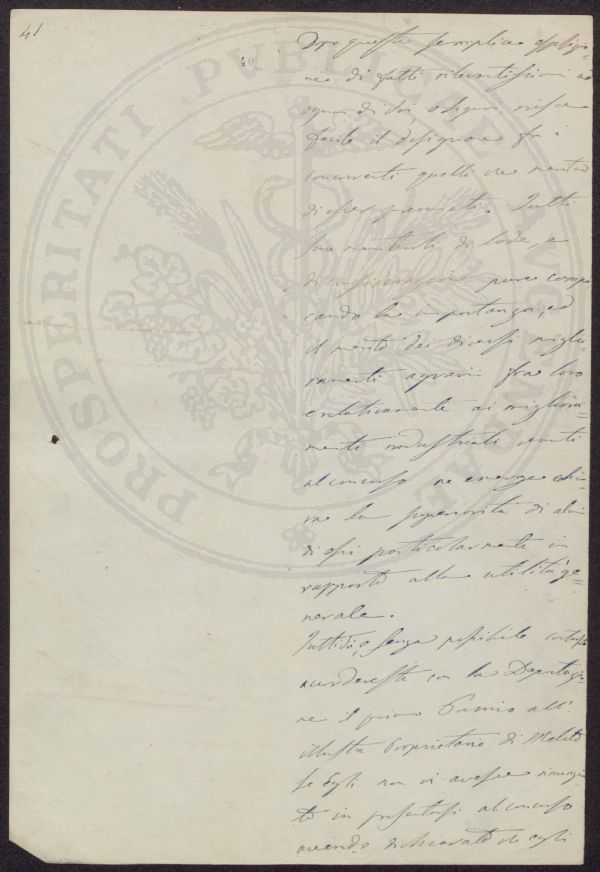 41
40
PROSPERITATI PVBLICAE AVGENDAE
Dopo questa semplice esposizio=
ne di fatti rilevantissimi
ognun di Voi, o Signori, riesce
facile il designare fra i
concorrenti quelli che
di esser premiati. Tutti
son meritevoli di lode, e
di considerazione pure
cando la importanza, ed
il merito dei diversi miglio=
ramenti agrarii fra loro
e relativamente ai migliora=
menti industriali venuti
al concorso ne emerge chia=
ra la superiorità di alcuni
di essi particolarmente in
rapporto alla utilità ge=
nerale.
senza possibile
con la Deputazio=
ne il primo Premio all'
illustre Proprietario di Meleto
se Egli non vi avesse rinunzia=
to in presentarsi al concorso
avendo dichiarato che egli